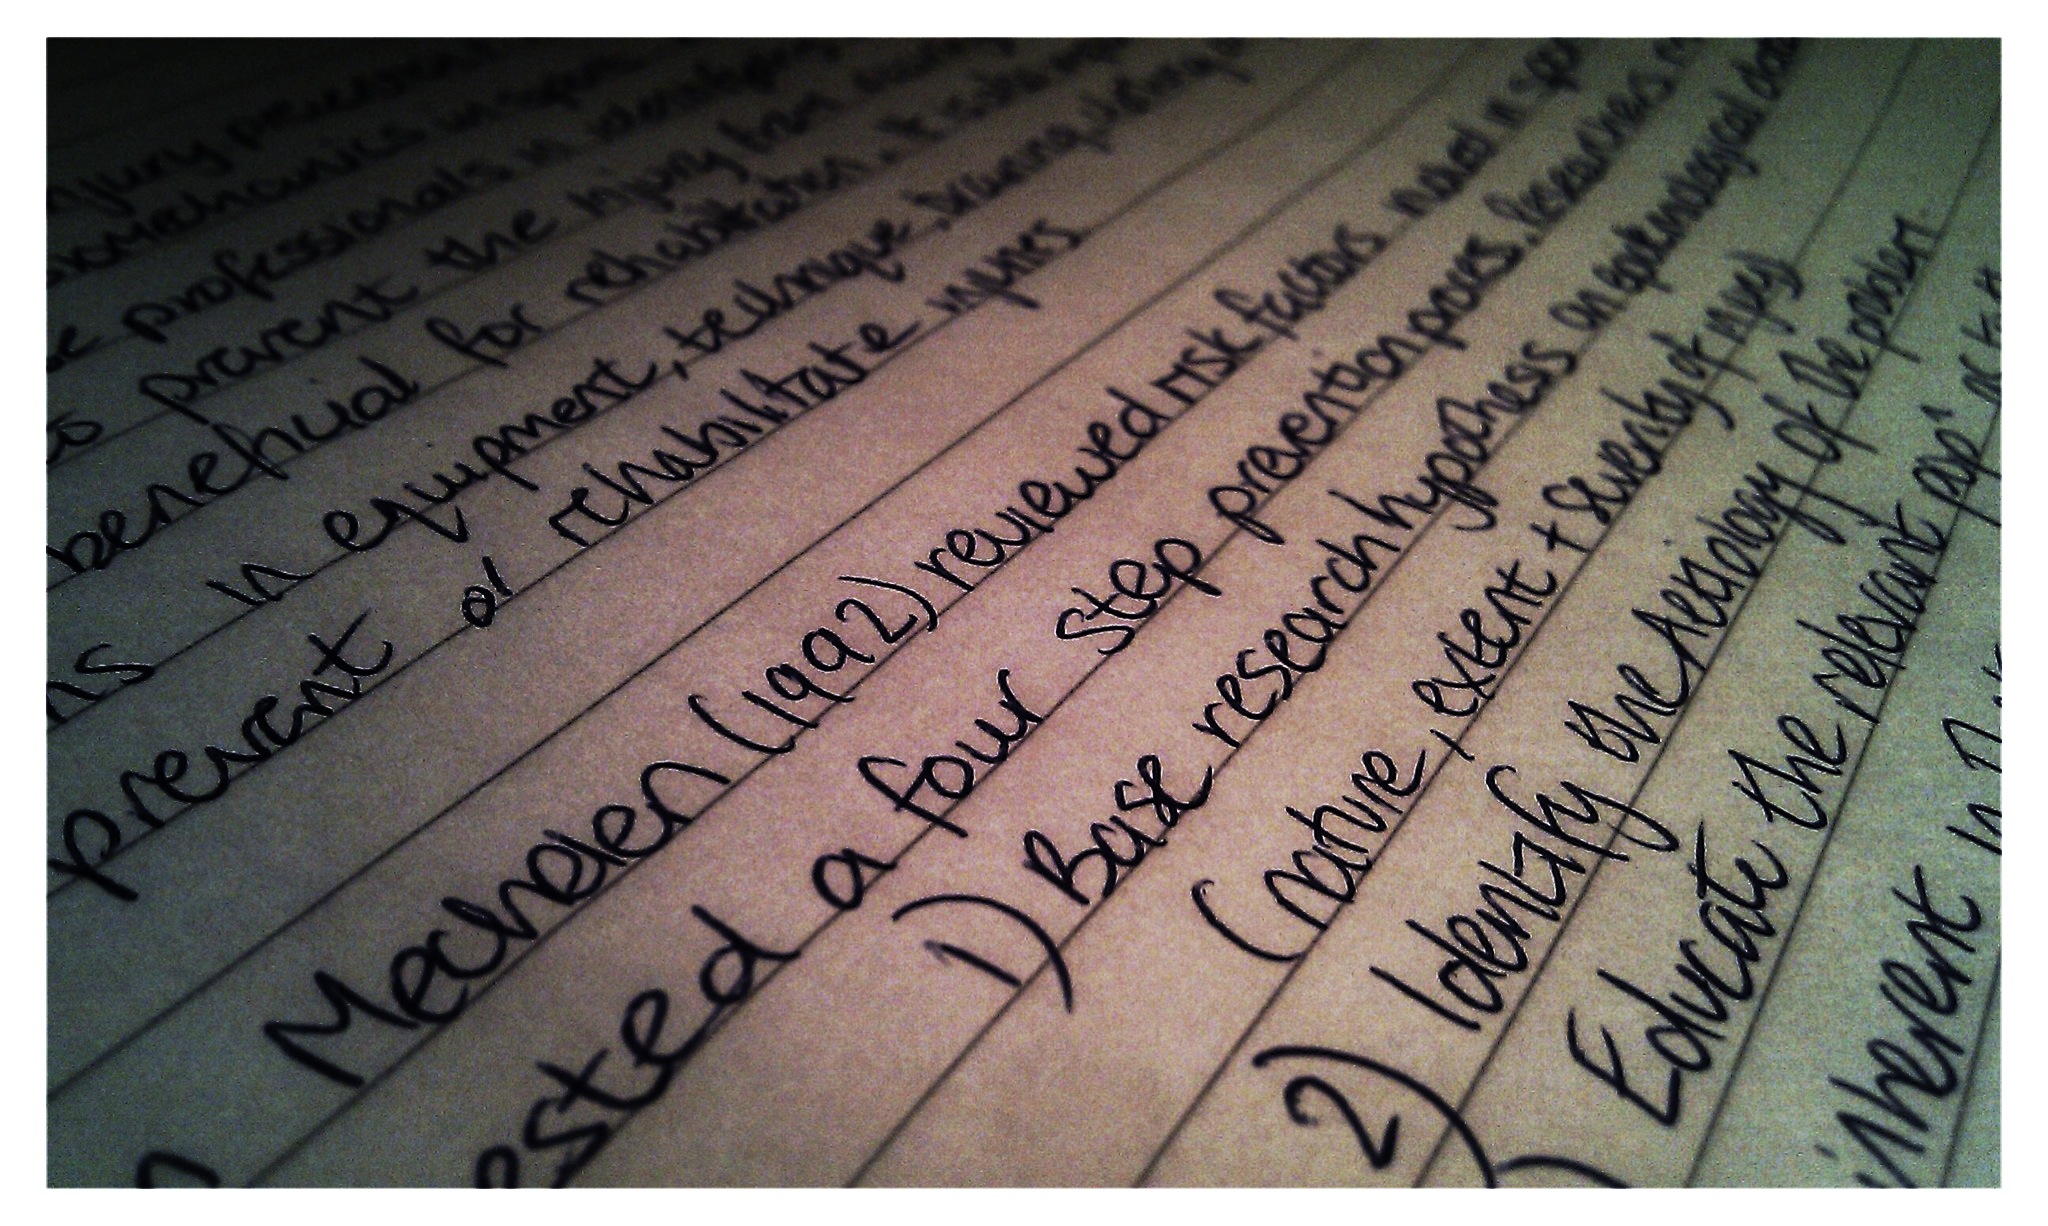 injury
biomechanics in
professionals in
to prevent the injury from
beneficial for rehabilitation, it
ns in equipment, technique, training,
prevent or rehabilitate injuries.
Mechelen (1992) reviewed risk factors
ested a four step prevention process. Researchers
1) Base research hypothesis on epidemiological data
(nature, extent + severity of injury)
2) Identify the Aetiology of the
) Educate the relevant pop'
inherent in